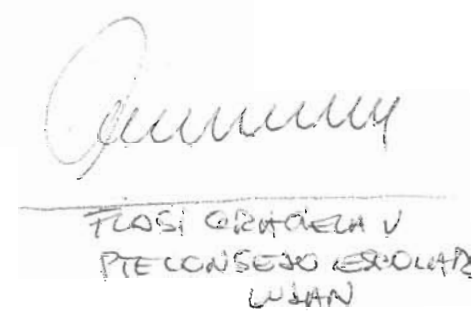 FLOSI GRACIELA V
PTE CONSEJO ESCOLAR
LUJAN